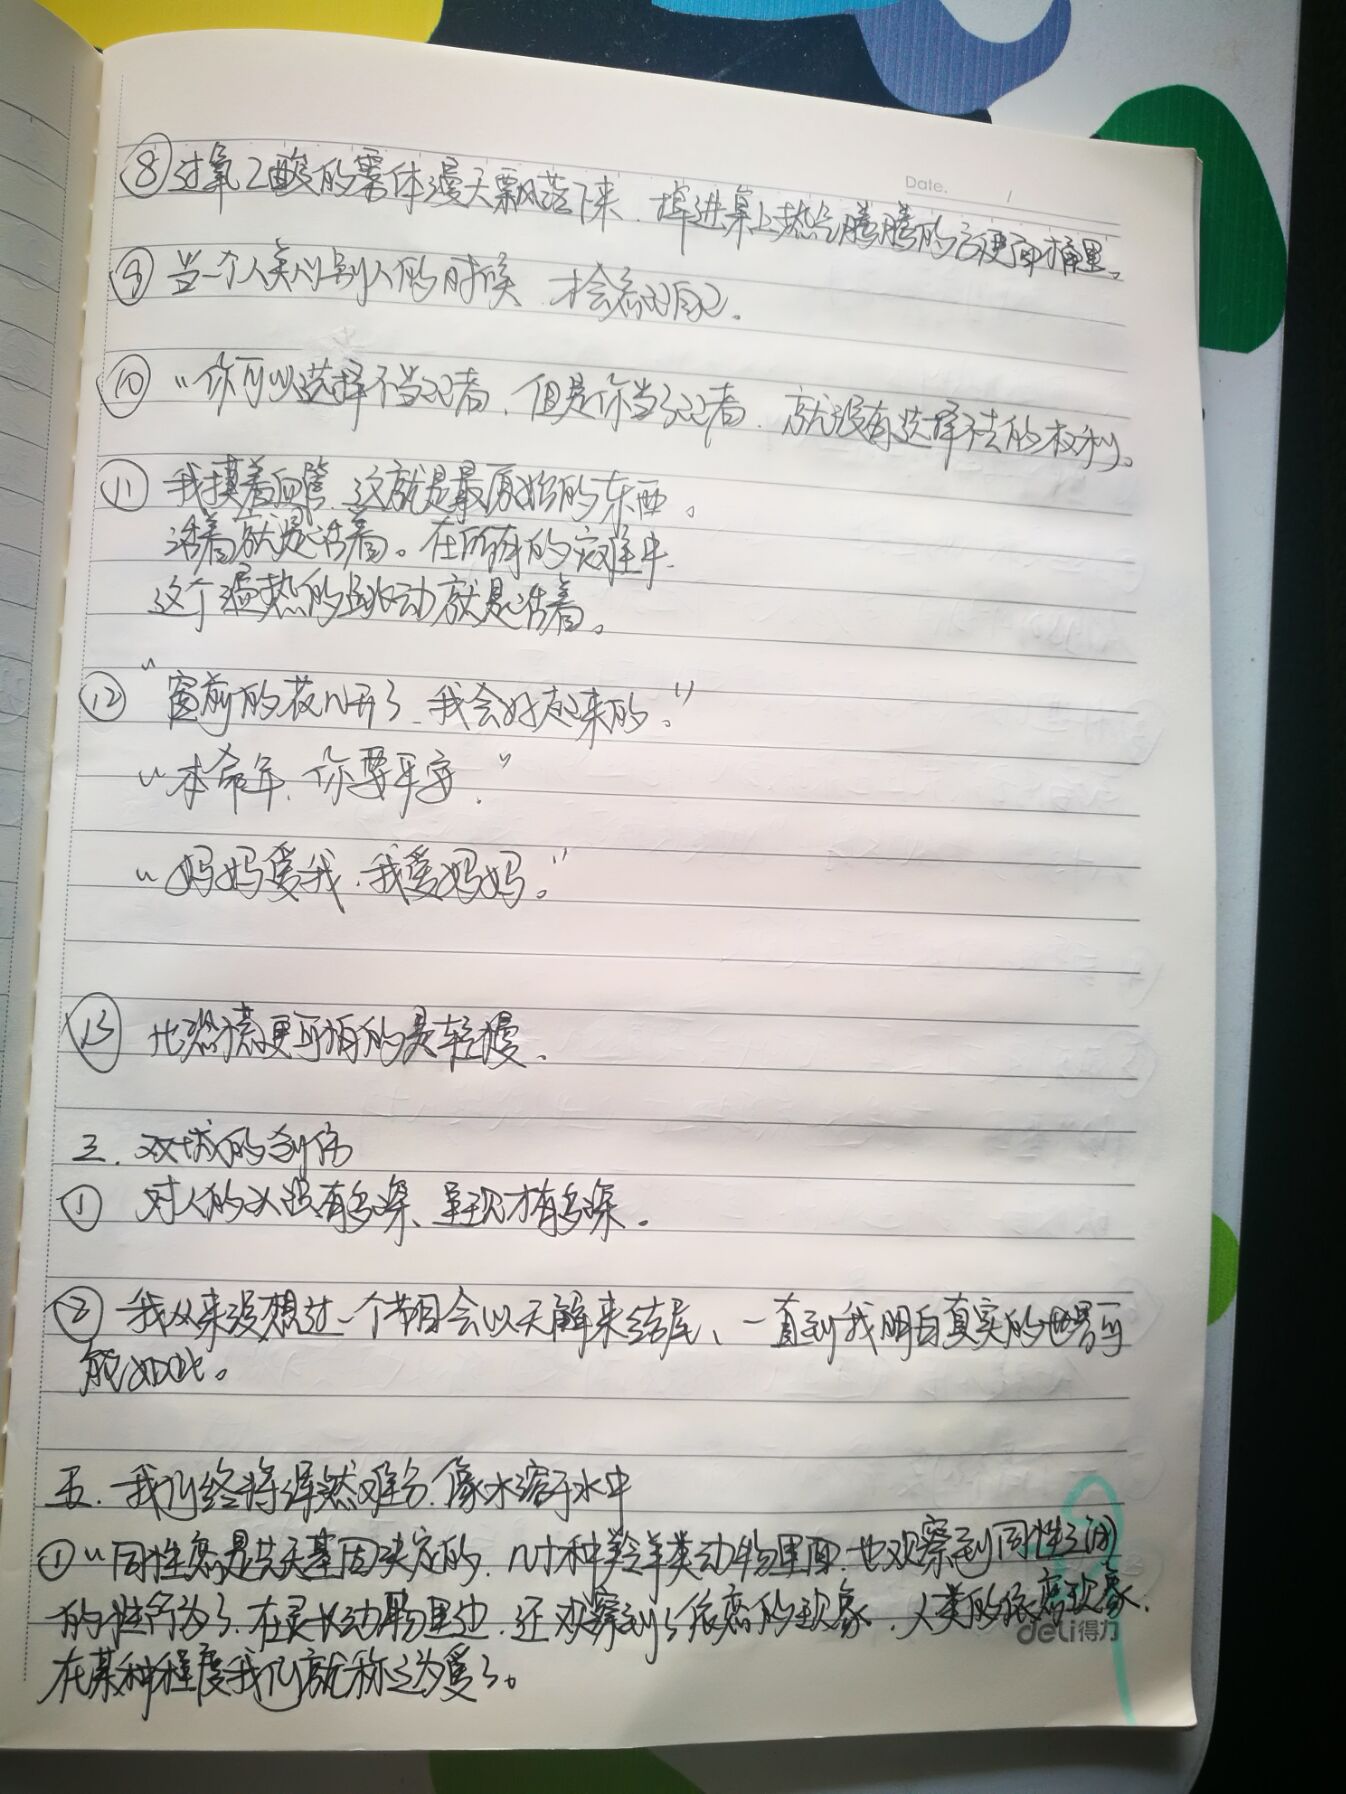 Date.
⑧过氧乙酸的雾体漫天飘落下来，掉进桌上热气腾腾的方便面桶里。
⑨ 当一个人关心别人的时候，才会忘记自己。
⑩ “你可以选择不当记者，但是你当了记者，就没有选择不去的权利。
⑪ 我摸着血管，这就是最原始的东西。
活着就是活着。在所有的灾难中，
这个温热的跳动就是活着。
⑫ “窗前的花儿开了，我会好起来的。”
“本命年，你要平安。”
“妈妈爱我，我爱妈妈。”
⑬ 比恐慌更可怕的是轻慢。
三、双城的创伤
① 对人的认识有多深，呈现才有多深。
② 我从来没想过一个节目会以无解来结尾，一直到我明白真实的世界可
能如此。
五、我们终将浑然难分，像水溶于水中
①“同性恋是先天基因决定的，几十种羚羊类动物里面，也观察到同性之间
的性行为了，在灵长动物里边，还观察到了依恋的现象，人类的依恋现象，
在某种程度我们就称之为爱了。
deli得力